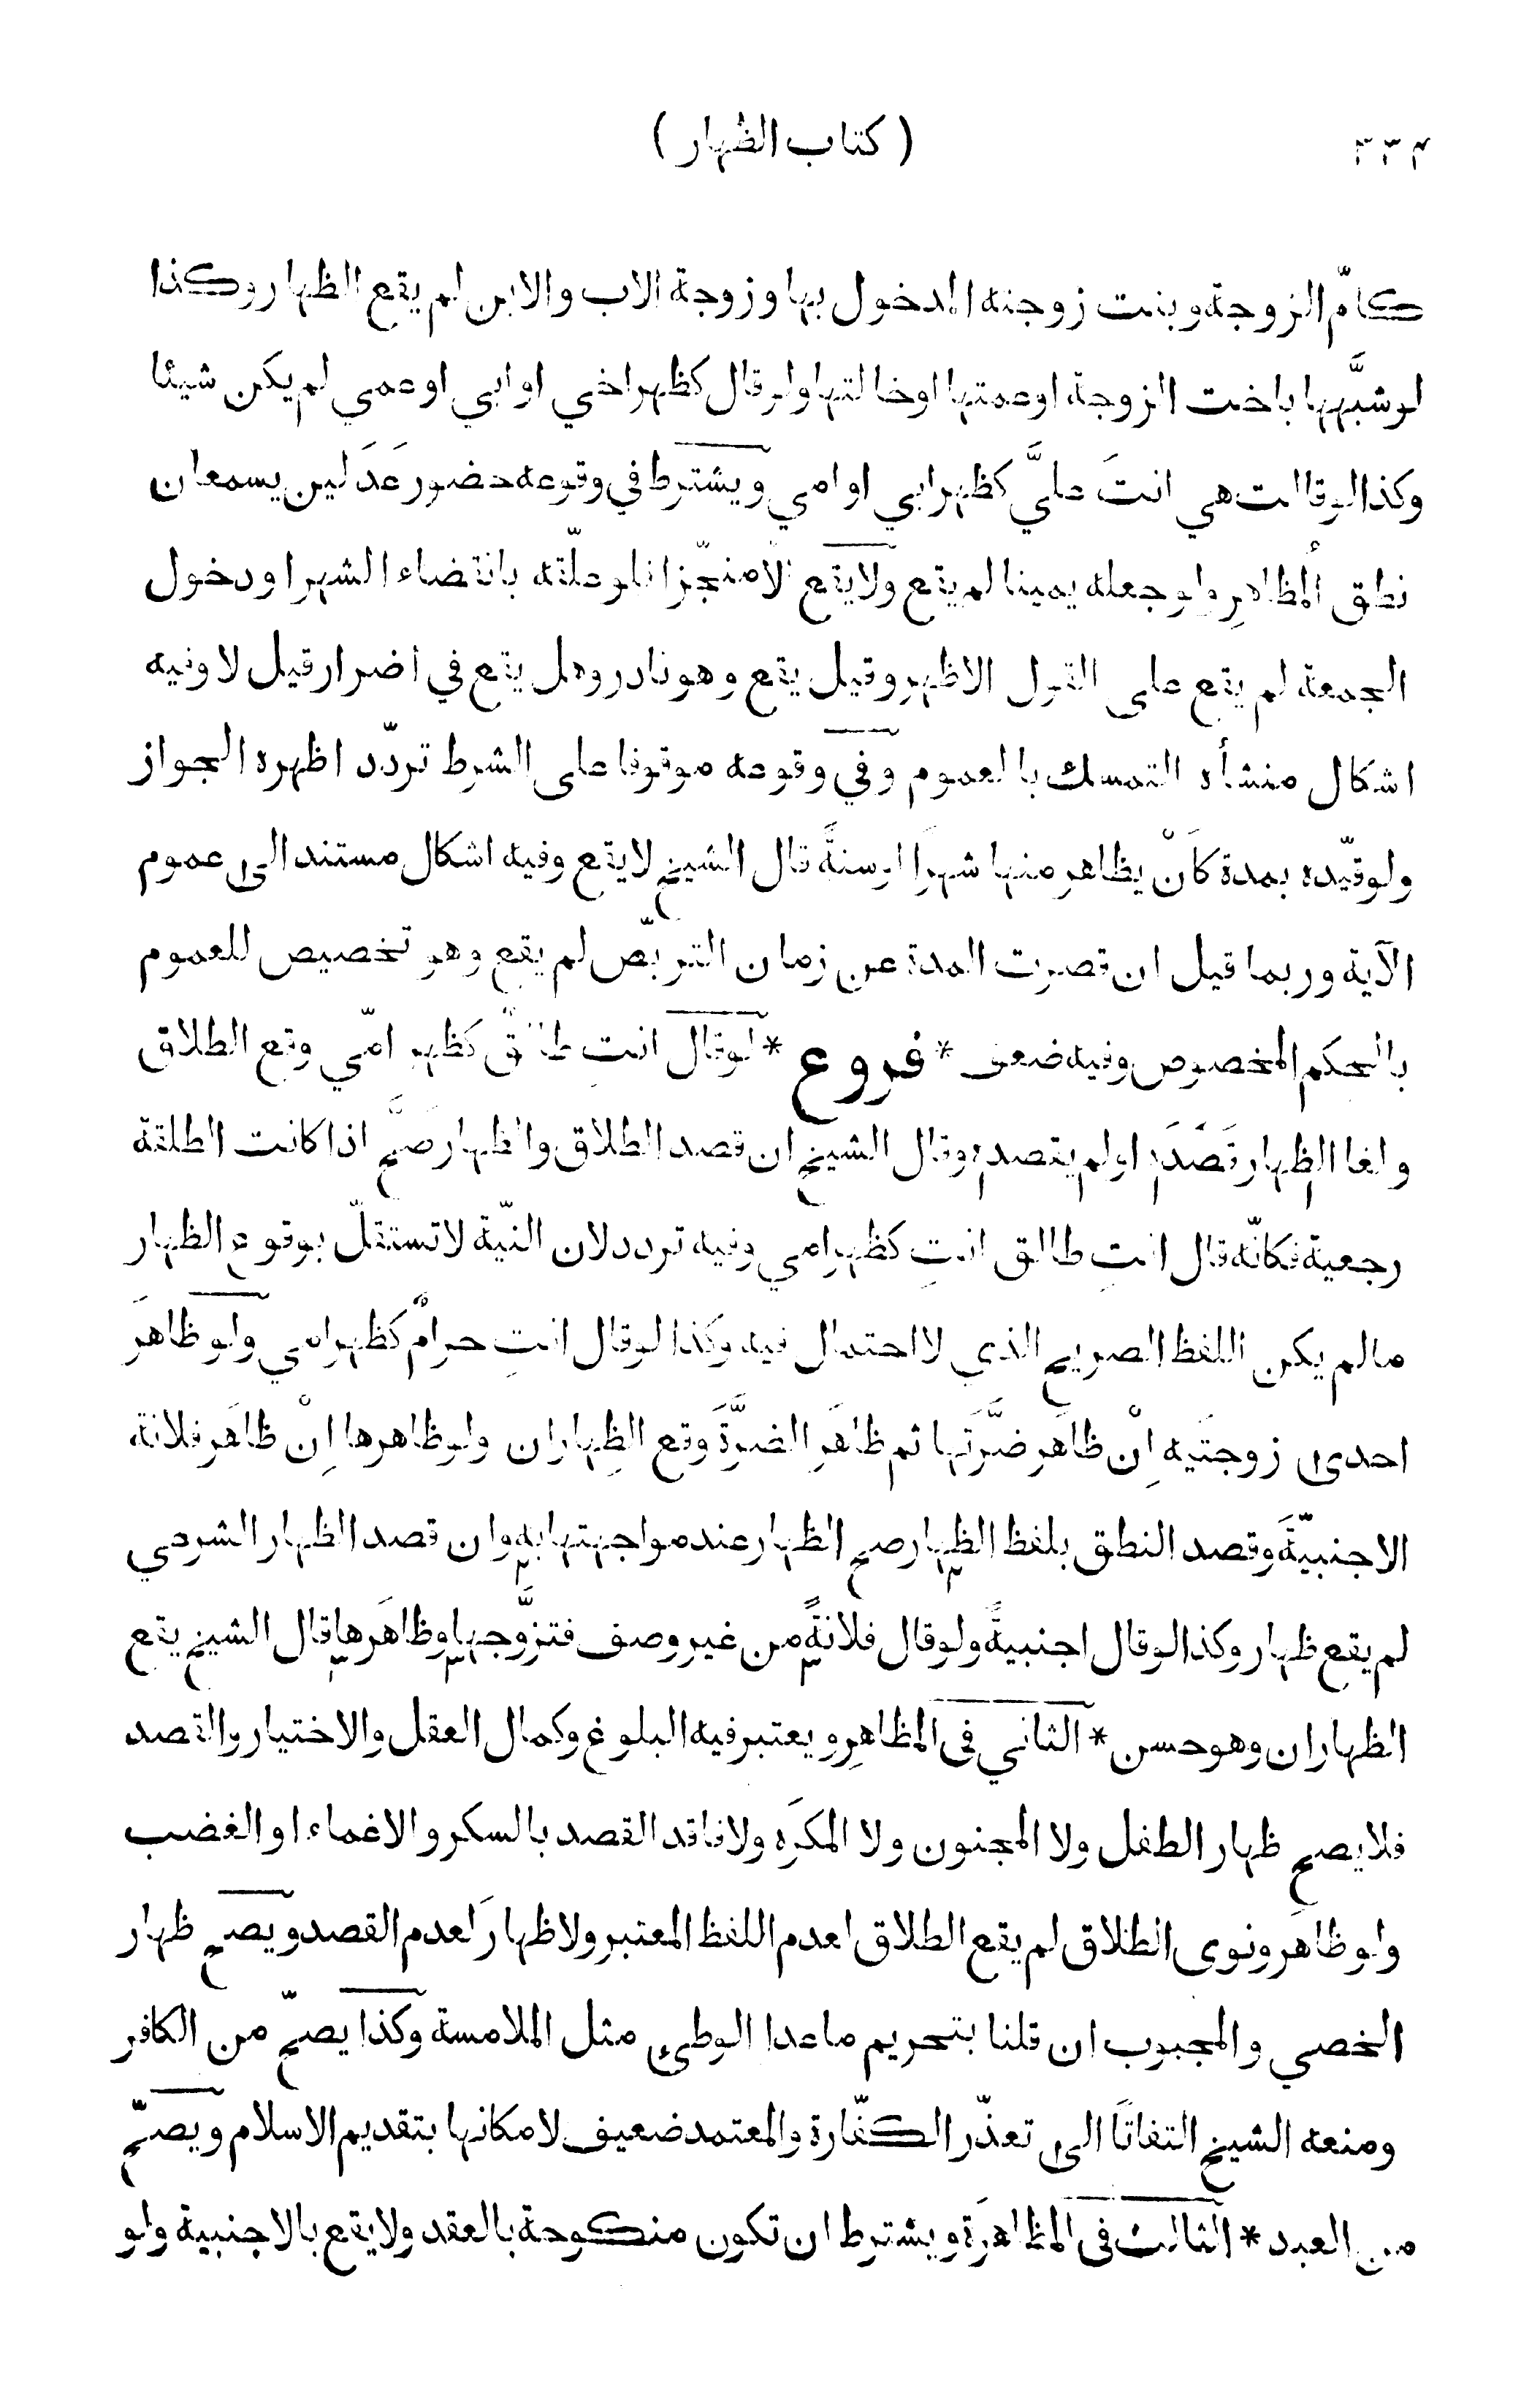 ٣٣٤
( كتاب الظهار )
كامّ الزوجة وبنت زوجته المدخول بها وزوجة الاب والابن لم يقع الظهار وكذا
لو شبَّهها باخت الزوجة او عمتها او خالتها ولو قال كظهر اخي او ابي او عمي لم يكن شيئا
وكذا لو قالت هي انتَ عليَّ كظهر ابي او امي ويشترط في وقوعه حضور عَدَلين يسمعان
نطق المُظاهرِ ولو جعله يمينا لم يقع ولا يقع الّا منجّزا فلو علّقه بانقضاء الشهر او دخول
الجمعة لم يقع على القول الاظهر وقيل يقع وهو نادر وهل يقع في اضرار قيل لا وفيه
اشكال منشأه التمسك بالعموم وفي وقوعه موقوفا على الشرط تردّد اظهره الجواز
ولو قيّده بمدة كَانْ يظاهر منها شهرًا او سنةً قال الشيخ لا يقع وفيه اشكال مستند الى عموم
الآية وربما قيل ان قصرت المدة عن زمان التربّص لم يقع وهو تخصيص للعموم
بالحكم المخصوص وفيه ضعف * فروع * لو قال انتِ طالقٌ كظهر امّي وقع الطلاق
ولغا الظهار قَصَدَه او لم يقصده وقال الشيخ ان قصد الطلاق والظهار صَحَّ اذا كانت الطلقة
رجعية فكانّه قال انتِ طالق انتِ كظهر امي وفيه تردد لان النّية لا تستقلّ بوقوع الظهار
ما لم يكن اللفظ الصريح الذي لا احتمال فيه وكذا لو قال انتِ حرامٌ كظهر امي ولو ظاهرَ
احدى زوجتَيه اِنْ ظاهَر ضَرَّتَها ثم ظاهَرِ الضرَّةَ وقع الظِهاران ولو ظاهرها اِنْ ظاهَر فلانة
الاجنبيّةَ وقصد النطق بلفظ الظهار صح الظهار عند مواجهتها به وان قصد الظهار الشرعي
لم يقع ظهار وكذا لو قال اجنبيةً ولو قال فلانةً من غير وصف فتزوَّجها وظاهَرها قال الشيخ يقع
الظهاران وهو حسن * الثاني في المظاهِر ويعتبر فيه البلوغ وكمال العقل والاختيار والقصد
فلا يصح ظهار الطفل ولا المجنون ولا المكرَه ولا فاقد القصد بالسكر والاغماء او الغضب
ولو ظاهَر ونوى الطلاق لم يقع الطلاق لعدم اللفظ المعتبر ولا ظهارَ لعدم القصد ويصح ظهار
الخصي والمجبوب ان قلنا بتحريم ما عدا الوطىِ مثل الملامسة وكذا يصحّ من الكافر
ومنعه الشيخ التفاتًا الى تعذّر الكفّارة والمعتمد ضعيف لامكانها بتقديم الاسلام ويصحّ
من العبد * الثالث في المظاهَرَة ويشترط ان تكون منكوحة بالعقد ولا يقع بالاجنبية ولو